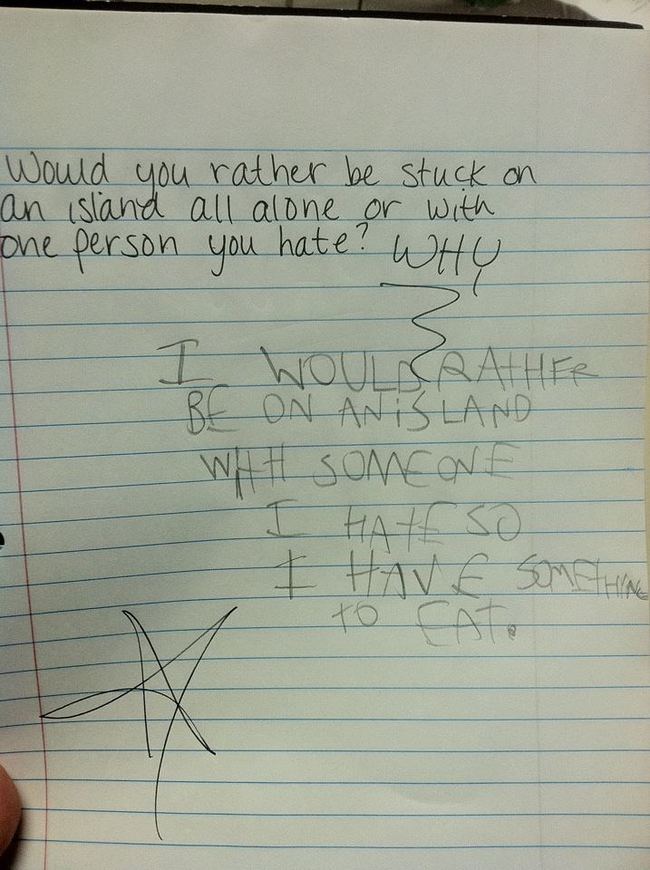 Would you rather be stuck on
an island all alone or with
one person you hate? WHY
I WOULD RATHER
BE ON AN ISLAND
WITH SOMEONE
I HATE SO
I HAVE SOMETHING
TO EAT.